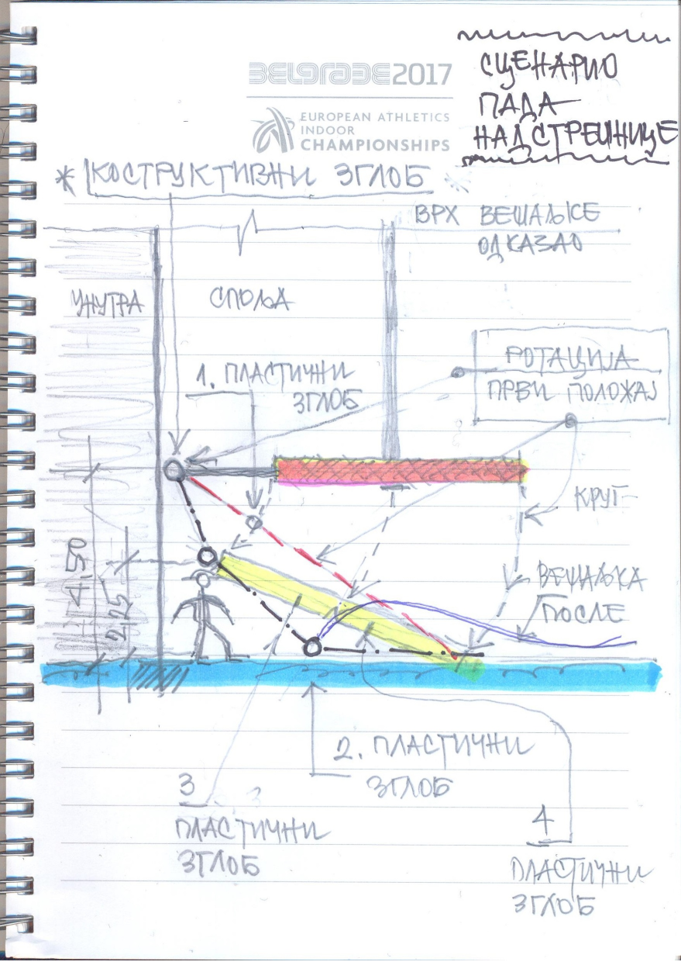 BELGRADE 2017
EUROPEAN ATHLETICS
INDOOR
CHAMPIONSHIPS
СЦЕНАРИО
ПАДА
НАДСТРЕШНИЦЕ
* КОСТРУКТИВНИ ЗГЛОБ *
ВРХ ВЕШАЉКЕ
ОДКАЗАО
УНУТРА
СПОЉА
1. ПЛАСТИЧНИ
ЗГЛОБ
РОТАЦИЈА
ПРВИ ПОЛОЖАЈ
КРУГ
4,50
2,25
ВЕШАЉКА
ПОСЛЕ
2. ПЛАСТИЧНИ
ЗГЛОБ
3
ПЛАСТИЧНИ
ЗГЛОБ
4
ПЛАСТИЧНИ
ЗГЛОБ